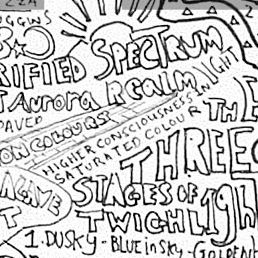 UGGINS
SPECTRUM
RIFIED
LIGHT
AURORA REALM
PAVED
ON COLOURS
HIGHER CONSCIOUSNESS IN
SATURATED COLOUR
THE
THREE
STAGES OF
TWIGHLIGHT
1. DUSKY - BLUE in SKY - GOLDEN